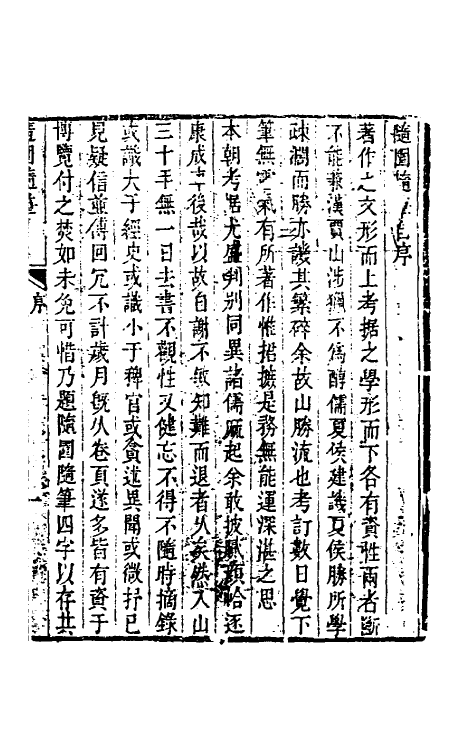 隨園隨筆自序
著作之文形而上考据之學形而下各有資性兩者斷
不能兼漢賈山涉獵不爲醇儒夏侯建譏夏侯勝所學
疎濶而勝亦譏其繁碎余故山勝流也考訂數日覺下
筆無靈氣有所著作惟捃摭是務無能運深湛之思
本朝考據尤盛判别同異諸儒麻起余敢披膩顏帢逐
康成車後哉以故自謝不敏知難而退者久矣然入山
三十年無一日去書不觀性又健忘不得不隨時摘錄
或識大于經史或識小于稗官或貪述異聞或微抒已
見疑信並傳回冗不計歲月旣久卷頁遂多皆有資于
博覽付之焚如未免可惜乃題隨園隨筆四字以存其
隨園隨筆
序
一